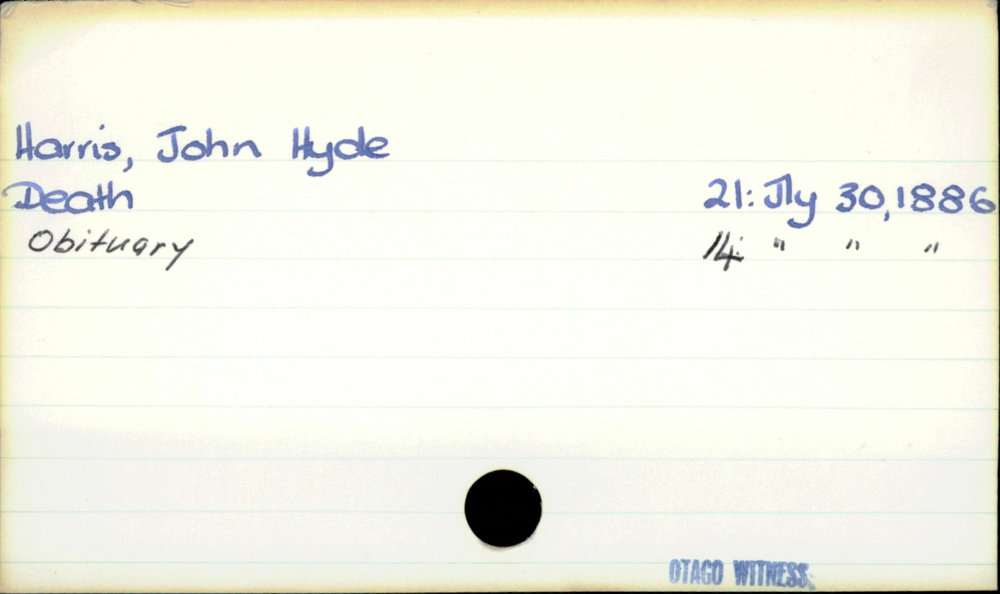 Harris, John Hyde
Death 21: Jly 30, 1886
Obituary 14: " " "
OTAGO WITNESS.